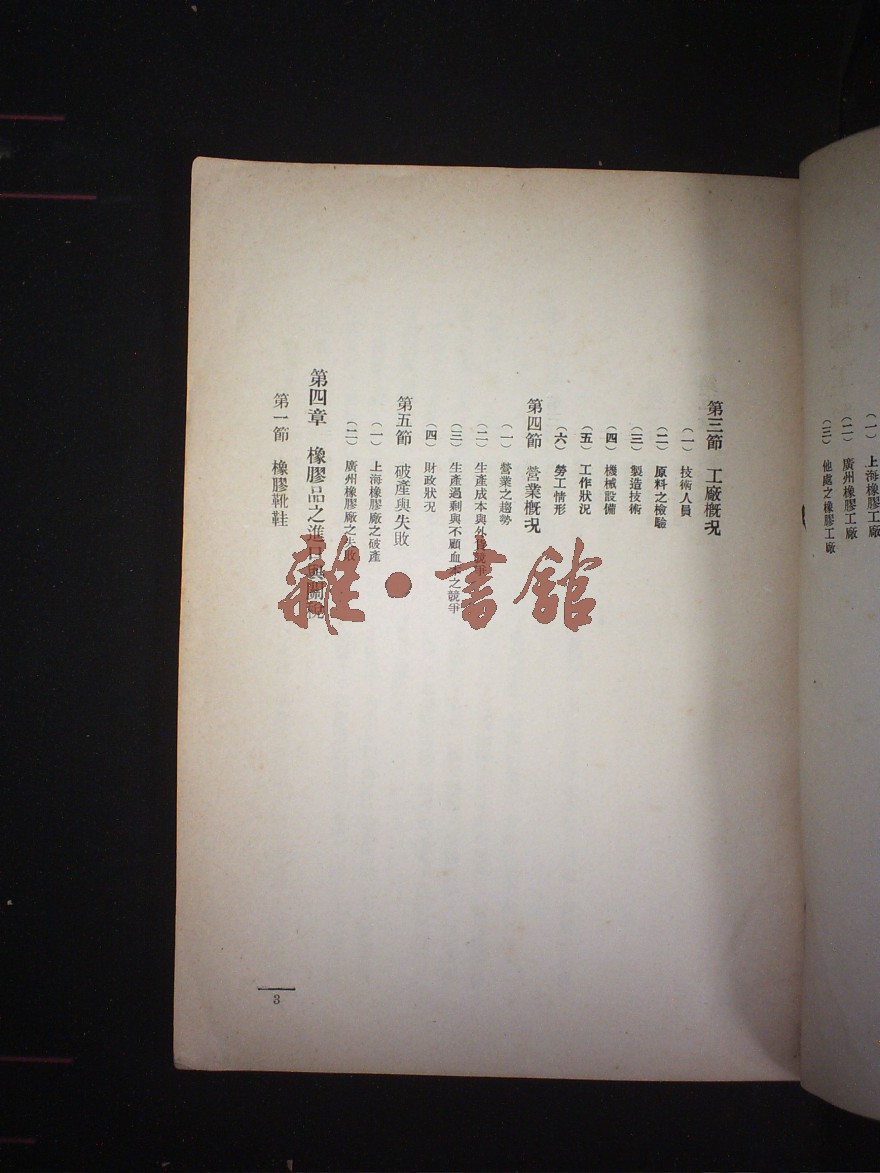 (一) 上海橡膠工廠
(二) 廣州橡膠工廠
(三) 他處之橡膠工廠
第三節 工廠概况
(一) 技術人員
(二) 原料之檢驗
(三) 製造技術
(四) 機械設備
(五) 工作狀况
(六) 勞工情形
第四節 營業概况
(一) 營業之趨勢
(二) 生產成本與外貨競爭
(三) 生產過剩與不顧血本之競爭
(四) 財政狀况
第五節 破產與失敗
(一) 上海橡膠廠之破產
(二) 廣州橡膠廠之失敗
第四章 橡膠品之進口與關稅
第一節 橡膠靴鞋
3
雜·書館